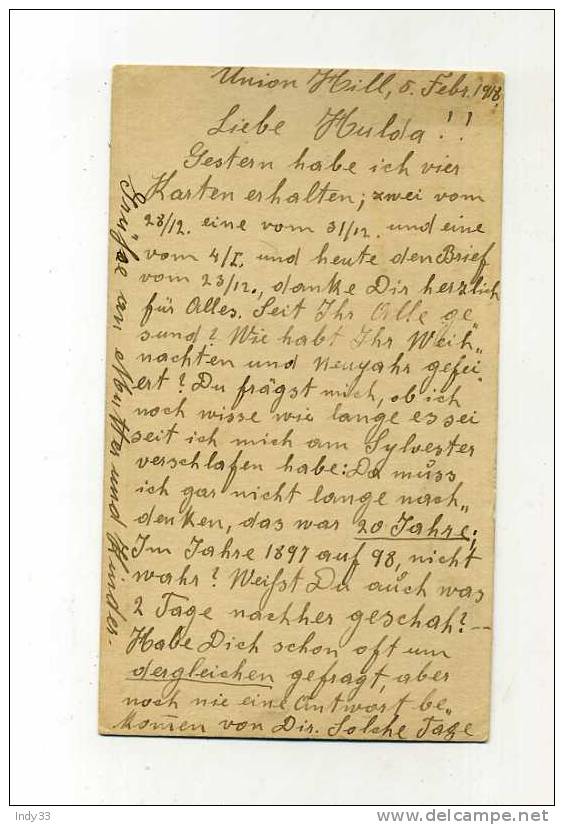 Union Hill, 5. Febr. 1918.
Liebe Hulda!!
Gestern habe ich vier
Karten erhalten; zwei vom
28/12. eine vom 31/12. und eine
vom 4/I. und heute den Brief
vom 23/12., danke Dir herzlich
für Alles. Seit Ihr Alle ge„
sund? Wie habt Ihr Weih„
nachten und Neujahr gefei„
ert? Du frägst mich, ob ich
noch wisse wie lange es sei
seit ich mich am Sylvester
verschlafen habe: Da muss
ich gar nicht lange nach„
denken, das war 20 Jahre;
Im Jahre 1897 auf 98, nicht
wahr? Weißt Du auch was
2 Tage nachher geschah? --
Habe Dich schon oft um
dergleichen gefragt, aber
noch nie eine Antwort be„
kom̅en von Dir. Solche Tage
Grüße an Mutter und Kinder.
Indy33
delcampe.net